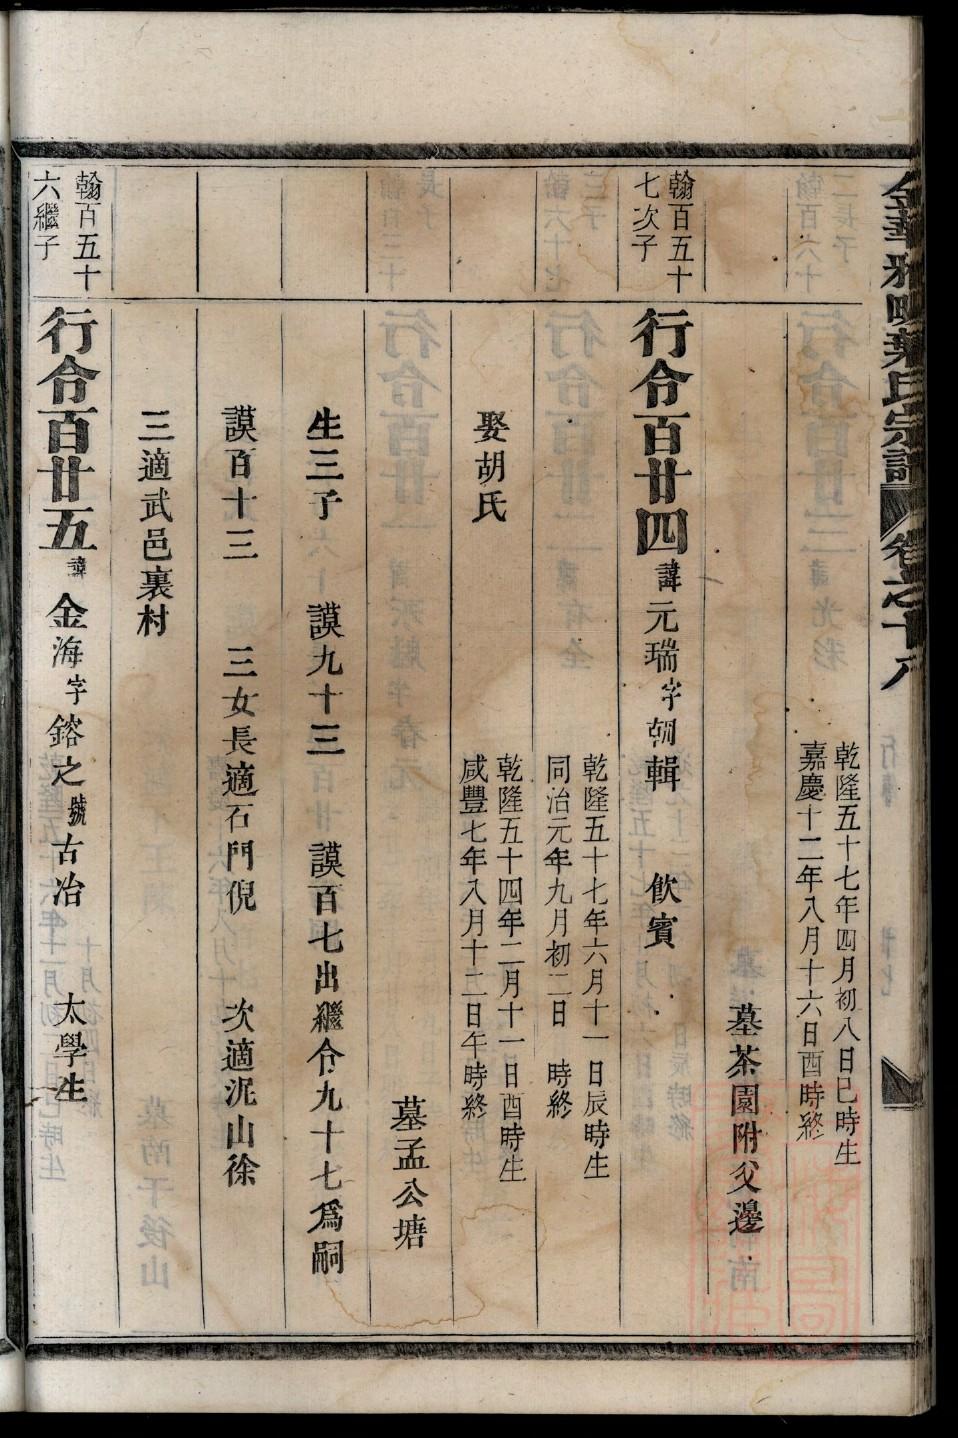 乾隆五十七年四月初八日巳時生
嘉慶十二年八月十六日酉時終
墓茶園附父邊
翰百五十
七次子
行令百廿四諱元瑞字朝輯 飲賓
乾隆五十七年六月十一日辰時生
同治元年九月初二日 時終
娶胡氏
乾隆五十四年二月十一日酉時生
咸豐七年八月十二日午時終
墓孟公塘
生三子 謨九十三 謨百七出繼令九十七爲嗣
謨百十三 三女長適石門倪 次適泥山徐
三適武邑裏村
翰百五十
六繼子
行令百廿五諱金海字鎔之號古冶 太學生